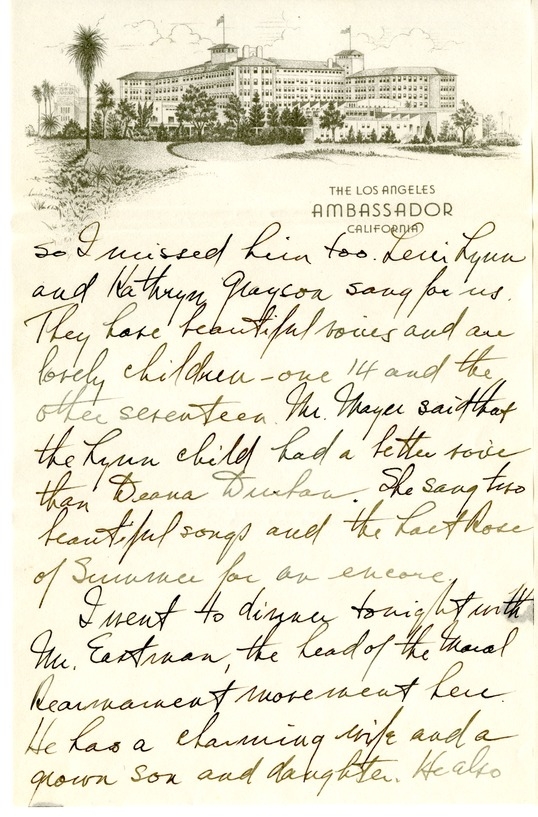 THE LOS ANGELES
AMBASSADOR
CALIFORNIA
so I missed him too. Leni Lynn
and Kathryn Grayson sang for us.
They have beautiful voices and are
lovely children - one 14 and the
other seventeen. Mr. Mayer said that
the Lynn child had a better voice
than Deana Durban. She sang two
beautiful songs and the Last Rose
of Summer for an encore.
I went to dinner tonight with
Mr. Eastman, the head of the Moral
Rearmament movement here.
He has a charming wife and a
grown son and daughter. He also